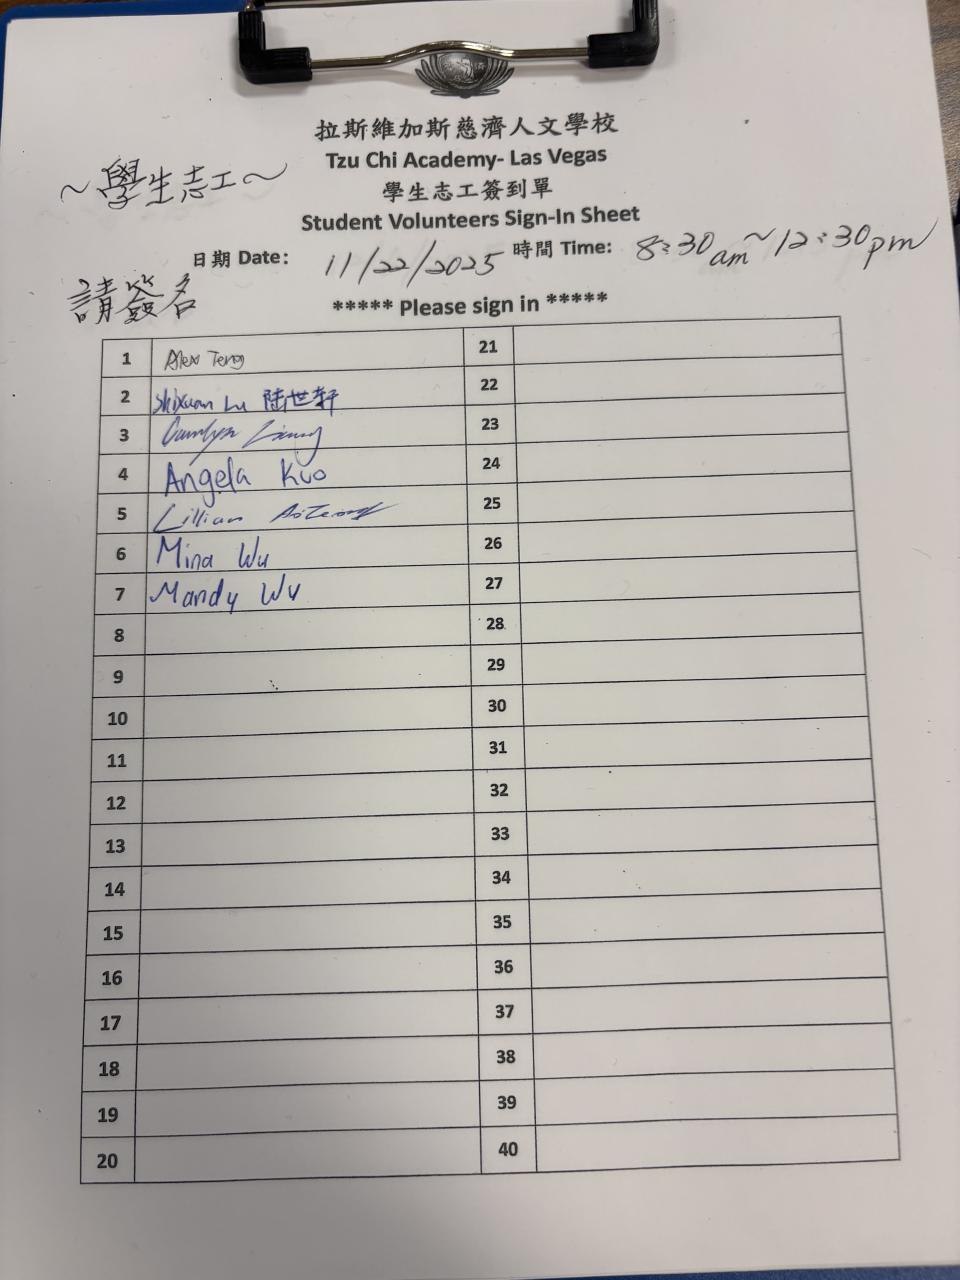 拉斯維加斯慈濟人文學校
Tzu Chi Academy- Las Vegas
~學生志工~
學生志工簽到單
Student Volunteers Sign-In Sheet
日期 Date: 11/22/2025 時間 Time: 8:30am~12:30pm
請簽名
***** Please sign in *****
1 Alex Teng 21
2 Shixuan Lu 陆世轩 22
3 23
4 Angela Kuo 24
5 Lillian 25
6 Mina Wu 26
7 Mandy Wu 27
8 28
9 29
10 30
11 31
12 32
13 33
14 34
15 35
16 36
17 37
18 38
19 39
20 40